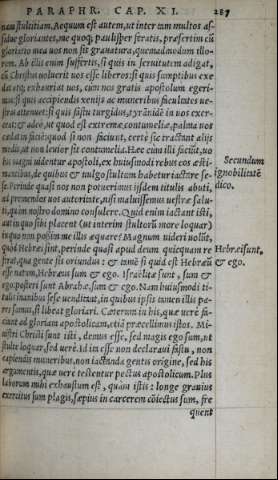 PARAPHR. CAP. XI. 287
nam stultitiam. Aequum est autem, ut inter tam multos as-
sidue gloriantes, me quoq; paulisper feratis, praesertim cũ
gloriatio mea uos non sit grauatura, quemadmodum illo-
rum. Ab illis enim suffertis, si quis in seruitutem adigat,
cũ Christus uoluerit uos esse liberos: si quis sumptibus exe
dat et exhauriat uos, cum nos gratis apostolum egeri-
mus: si quis accipiendis xenijs ac muneribus facultates ue-
stras attenuet: si quis fastu turgidus, tyrãnidẽ in uos exer-
ceat, & adeo, ut quod est extremae contumeliae, palma uos
caedat in faciẽ: quod si non faciunt, certe sic tractãt alijs
modis, ut non leuior sit contumelia. Haec cum illi faciãt, uo
bis magni uidentur apostoli, ex huiusmodi rebus eos aesti-
mantibus, de quibus & uulgo stultum habetur iactare se-
se. Perinde quasi nos non potuerimus ijsdem titulis abuti,
ac praetendere uos autoritate, nisi maluissemus uestrae salu-
ti, quàm nostro domino consulere. Quid enim iactant isti,
aut in quo sibi placent (ut interim stultorũ more loquar)
in quo non possim me illis aequare? Magnum uideri uolũt,
quòd Hebraei sint, perinde quasi apud deum quicquam re
ferat, qua gente sis oriundus: & tamẽ si quid est Hebraeũ
esse natum, Hebraeus sum & ego. Israëlitae sunt, sum &
ego. posteri sunt Abrahae, sum & ego. Nam huiusmodi ti-
tulis inanibus sese uenditant, in quibus ipsis tamen illis pa-
res sumus, si libeat gloriari. Caeterum in his, quae uerè fa-
ciunt ad gloriam apostolicam, etiã praecellimus istos. Mi-
nistri Christi sunt isti, demus esse, sed magis ego sum, ut
stultè loquar, sed uerè. Id in esse non declaraui fastu, non
capiendis muneribus, non iactanda gentis origine, sed his
argumentis, quae uerè testentur pectus apostolicum. Plus
laborum mihi exhaustum est, quàm istis: longe grauius
exercitus sum plagis, saepius in carcerem cõiectus sum, fre
quent
Secundum
ignobilitatẽ
dico.
Hebraei sunt,
& ego.